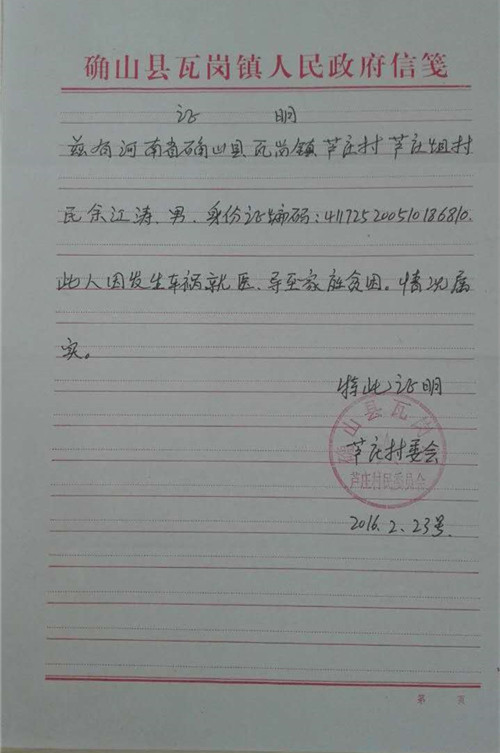 确山县瓦岗镇人民政府信笺
证 明
兹有河南省确山县瓦岗镇芦庄村芦庄组村
民余江涛、男、身份证编码：411725200510186810.
此人因发生车祸就医、导至家庭贫困。情况属
实。
特此证明
确山县瓦岗
芦庄村委会
芦庄村民委员会
2016.2.23号.
第 页